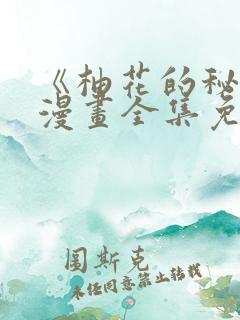 《柚花的秘
漫畫全集免
圖斯克
未经同意禁止转载